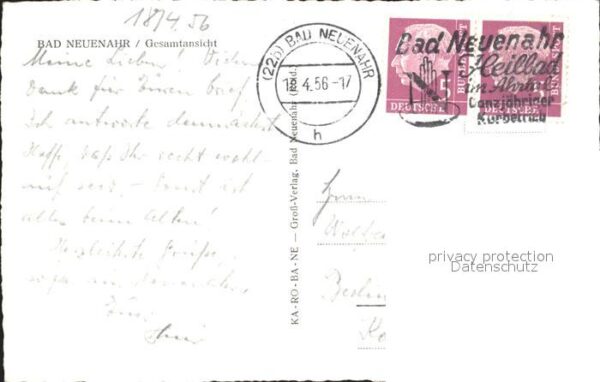 18/4.56
BAD NEUENAHR / Gesamtansicht
Meine Lieben! Vielen
Dank für Euren Brief
Ich antworte demnächst
Hoffe, daß Ihr recht wohl
seid, – Sonst ist
alles beim Alten!
Herzlichste Grüße,
Eure
(22b) BAD NEUENAHR
18.4.56-17
h
Bad Neuenahr
Heilbad
im Ahrtal
Ganzjähriger
Kurbetrieb
DEUTSCHE
BUNDESPOST
DEUTSCHE
BUNDESPOST
KA-RO-BA-NE — Groß-Verlag, Bad Neuenahr (Rhld.)
Berlin
privacy protection
Datenschutz